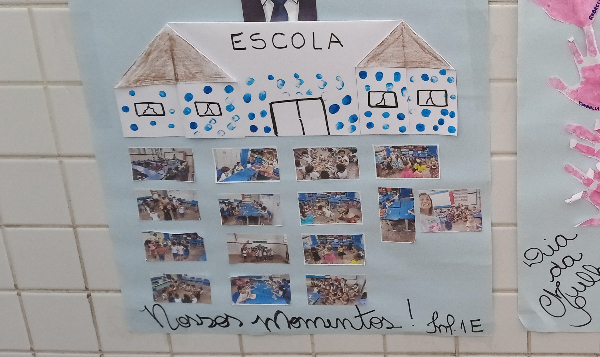 ESCOLA
Nossos momentos! Inf. 1E
Dia
da